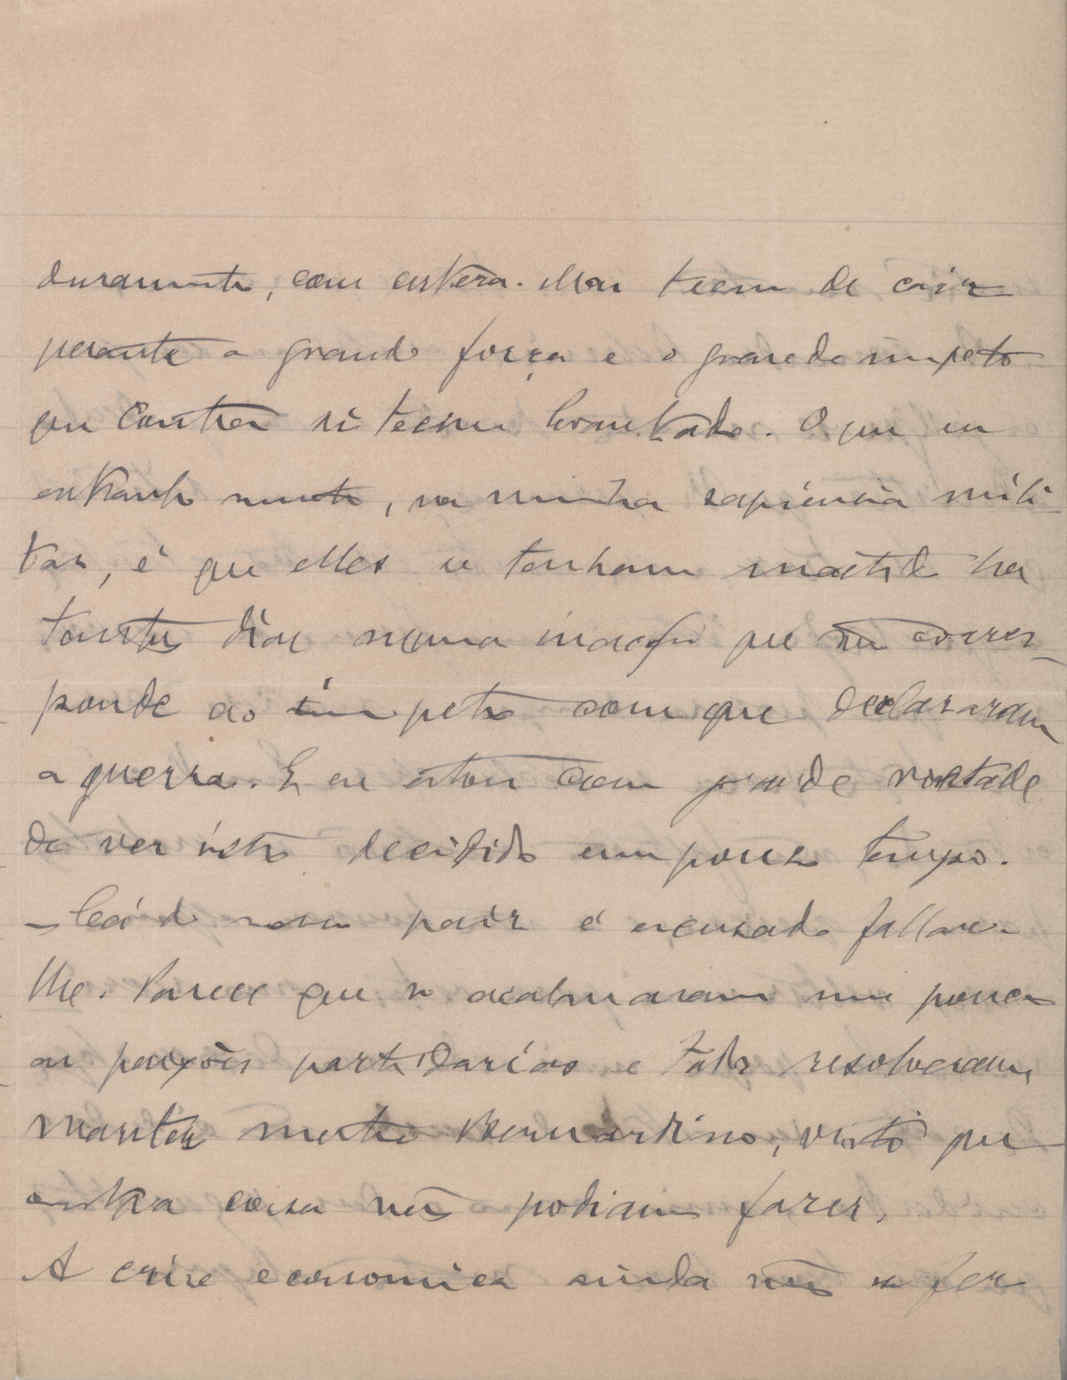 duramente, com certeza. Mas teem de cair
perante a grande força e o grande impeto
que contra si teem levantado. O que eu
extranho muito, na minha sapiencia mili-
tar, é que elles se tenham mantido ha
tantos dias numa inacção que não corres-
ponde ao impeto com que declararam
a guerra. E eu estou com grande vontade
de ver isto decidido em pouco tempo.
- Cá do nosso paiz é escusado fallar-
lhe. Parece que se acalmaram um pouco
as paixões partidarias e todos resolveram
manter mestre Bernardino, visto que
outra coisa não podiam fazer.
A crise economica ainda não se fez